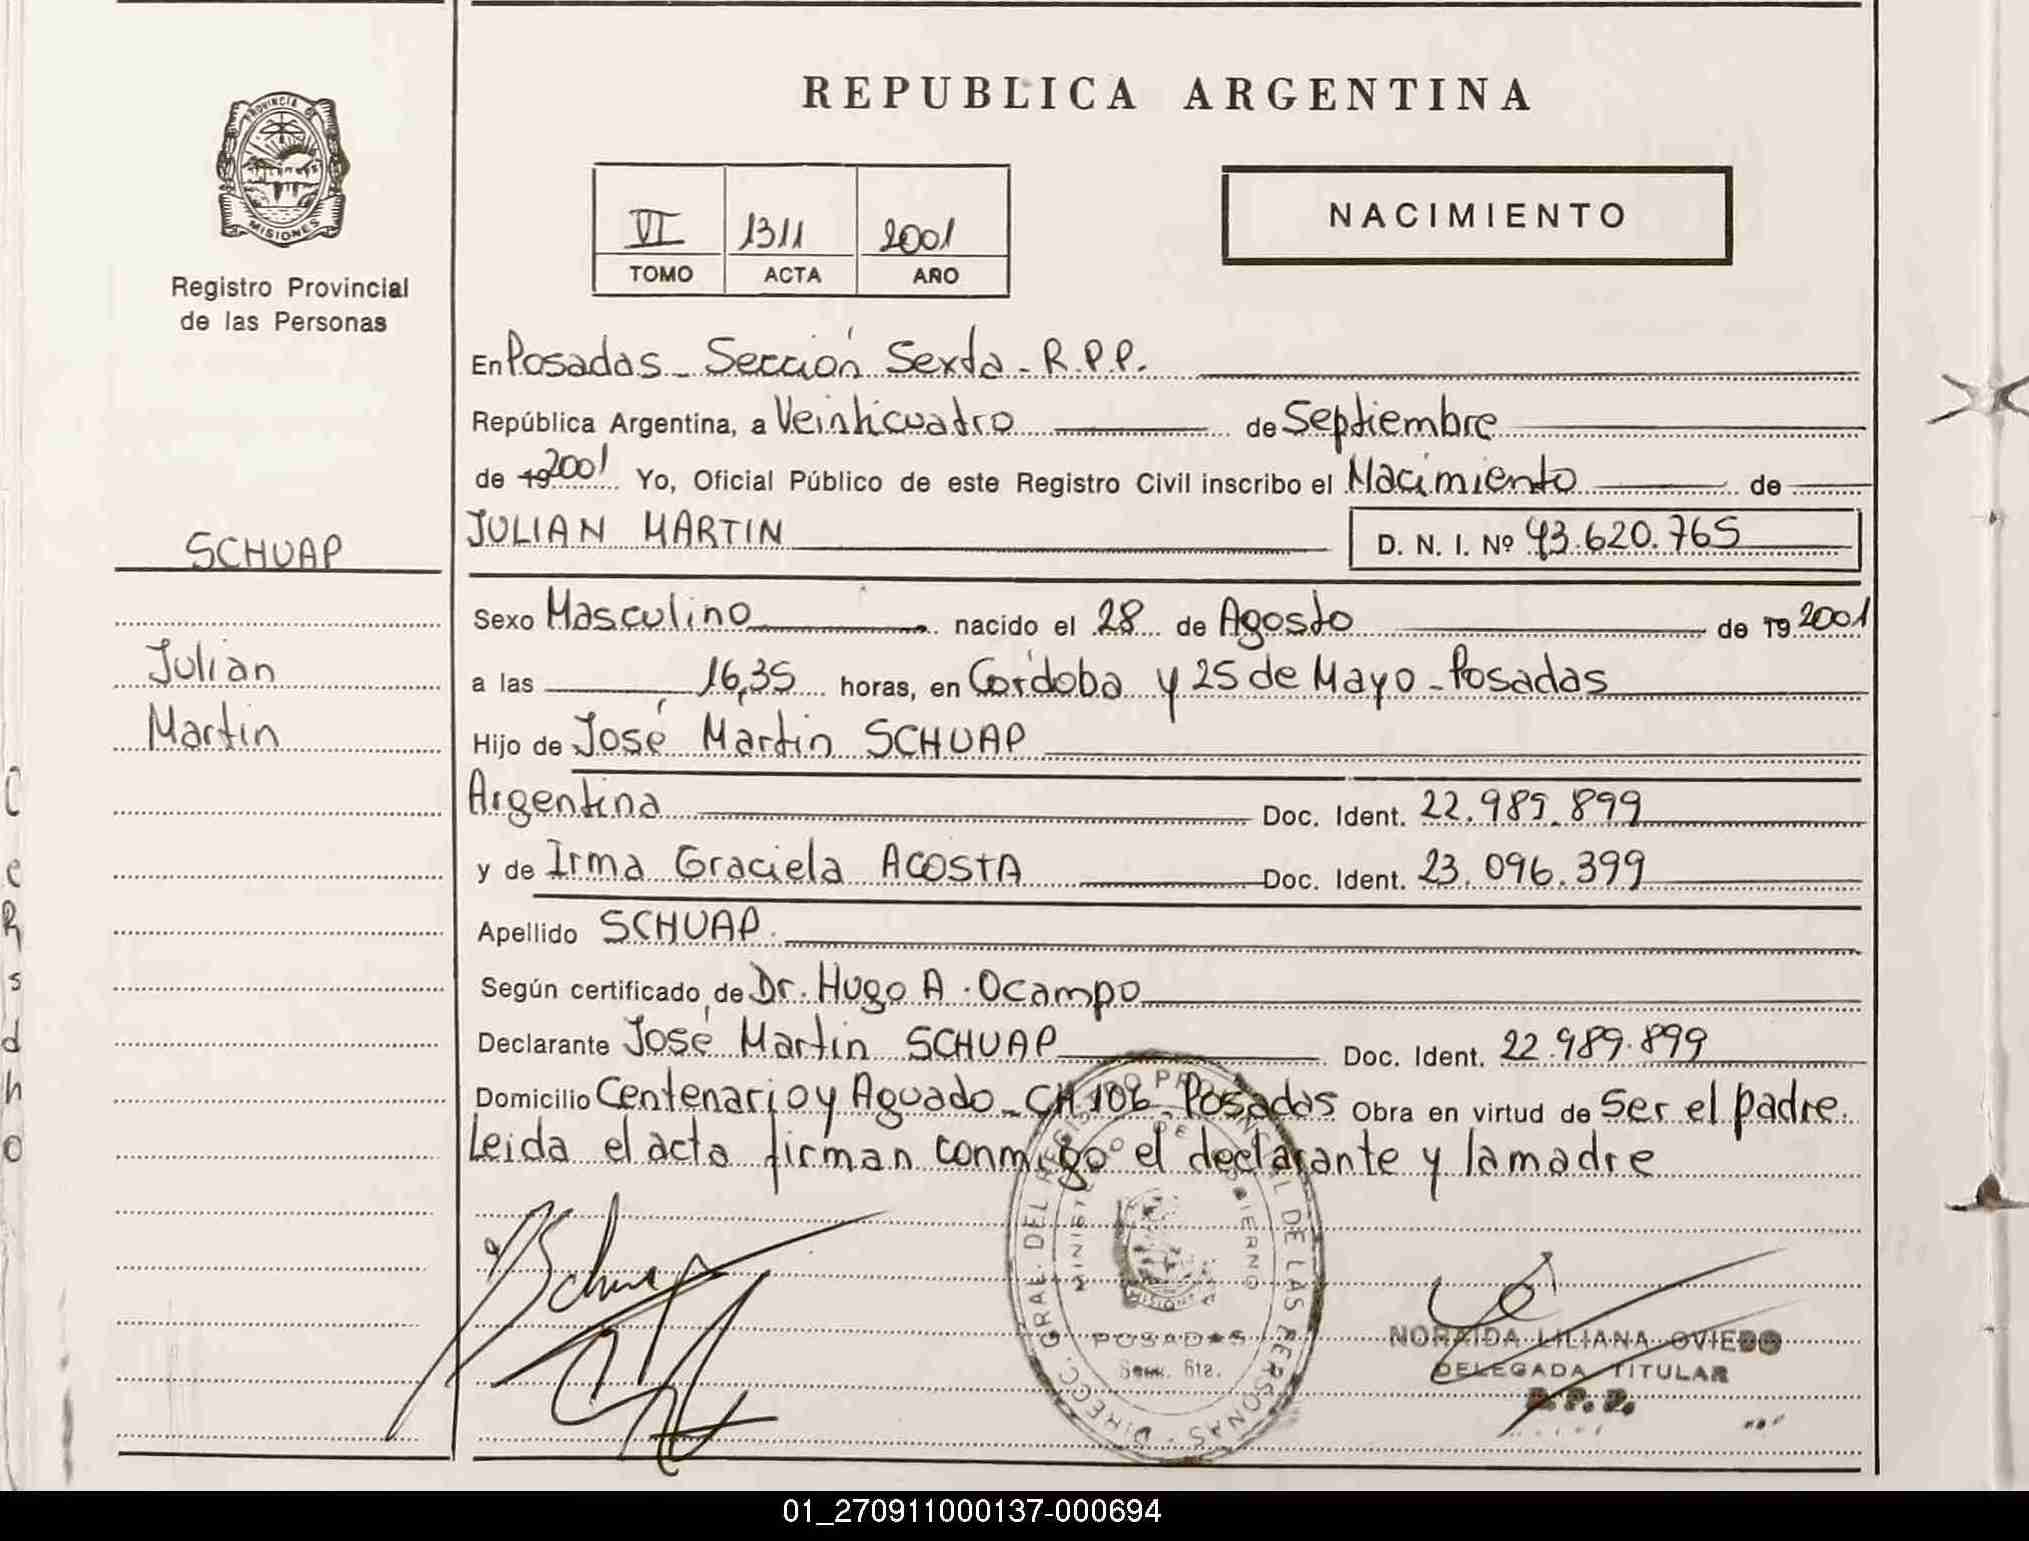 REPUBLICA ARGENTINA
PROVINCIA DE
MISIONES
Registro Provincial
de las Personas
VI 1311 2001
TOMO ACTA AÑO
NACIMIENTO
En Posadas - Sección Sexta - R.P.P.
República Argentina, a Veinticuatro de Septiembre
de 19 2001 Yo, Oficial Público de este Registro Civil inscribo el Nacimiento de
SCHUAP
JULIAN MARTIN D. N. I. Nº 43.620.765
Sexo Masculino nacido el 28 de Agosto de 19 2001
Julian
a las 16,35 horas, en Córdoba y 25 de Mayo - Posadas
Martin
Hijo de José Martin SCHUAP
Argentina Doc. Ident. 22.989.899
y de Irma Graciela ACOSTA Doc. Ident. 23.096.399
Apellido SCHUAP.
Según certificado de Dr. Hugo A. Ocampo
Declarante José Martin SCHUAP Doc. Ident. 22.989.899
Domicilio Centenario y Aguado - CH 106 - Posadas Obra en virtud de Ser el padre.
Leida el acta firman conmigo el declarante y la madre
DIRECC. GRAL. DEL REGISTRO PROVINCIAL DE LAS PERSONAS
MINISTERIO DE GOBIERNO
MISIONES
POSADAS
Secc. 6ta.
NORAIDA LILIANA OVIEDO
DELEGADA TITULAR
R.P.P.
01_270911000137-000694